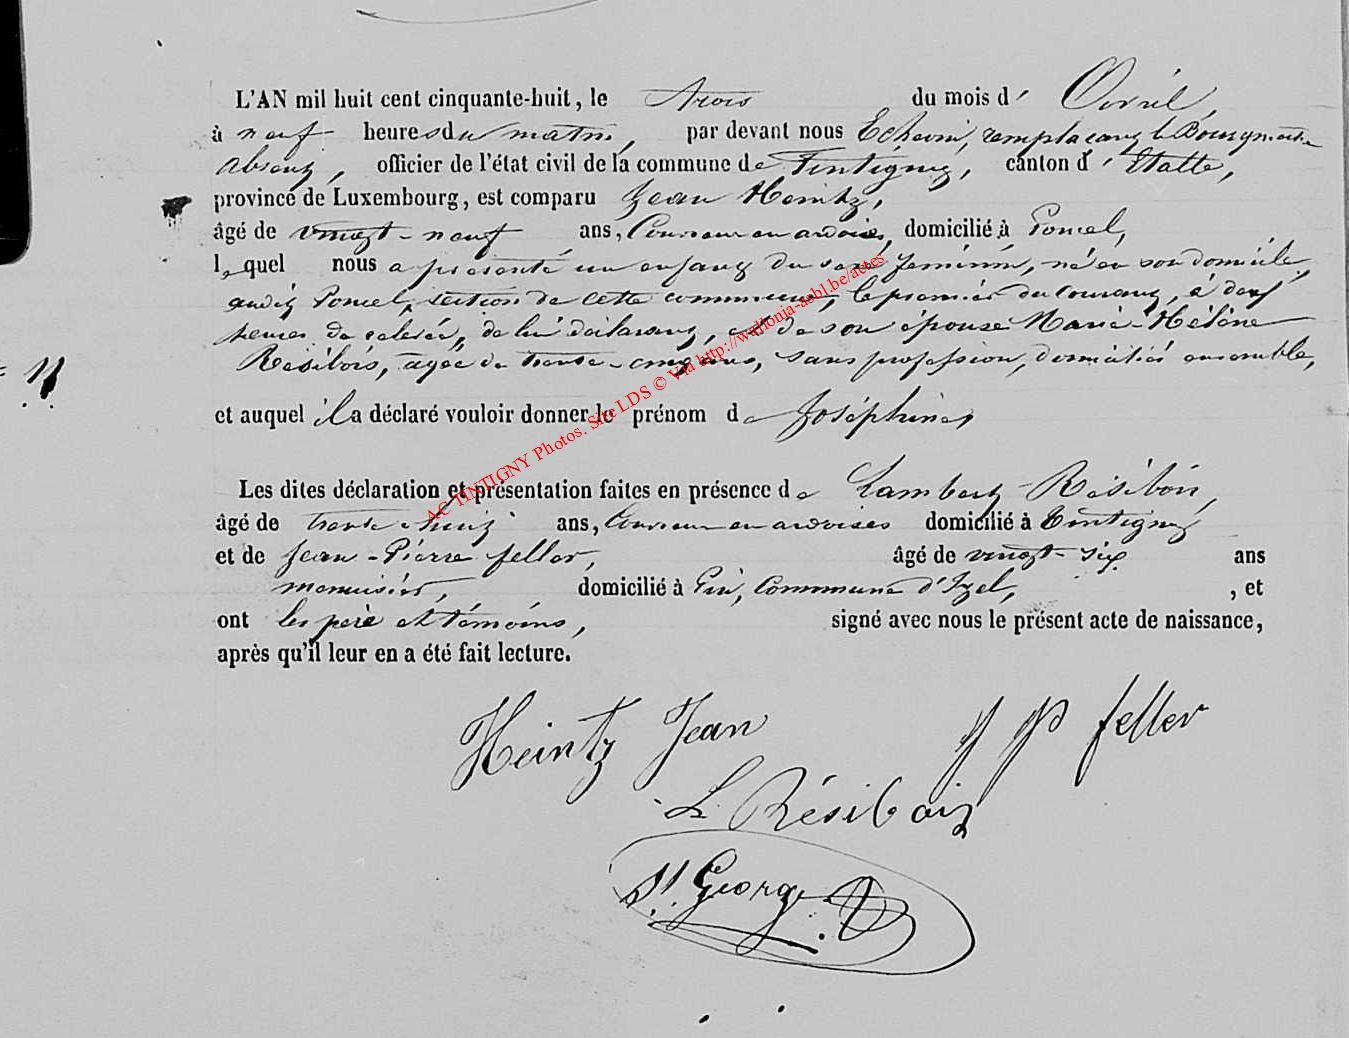 L'AN mil huit cent cinquante-huit, le trois du mois d' Avril,
à neuf heures du matin, par devant nous Echevin, remplaçant le Bourgmestre
absent, officier de l'état civil de la commune de Tintigny, canton d' Etalle,
province de Luxembourg, est comparu Jean Heintz,
âgé de vingt-neuf ans, Couvreur en ardoises, domicilié à Poncel,
lequel nous a présenté un enfant du sexe féminin, né en son domicile
audit Poncel, section de cette commune, le premier du courant, à
heures de relevée, de lui déclarant, et de son épouse Marie-Hélène
Résibois, agée de trente-cinq ans, sans profession, domiciliés ensemble,
= 11
et auquel il a déclaré vouloir donner le prénom de Joséphine,
Les dites déclaration et présentation faites en présence de Lambert Résibois,
âgé de trente-huit ans, Couvreur en ardoises domicilié à Tintigny
et de Jean-Pierre feller, âgé de vingt-six ans
menuisier, domicilié à Pin, Commune d'Izel, , et
ont les père et témoins, signé avec nous le présent acte de naissance,
après qu'il leur en a été fait lecture.
AC TINTIGNY Photos. Site LDS © Via http://wallonia-asbl.be/actes
Heintz Jean J P feller
L Résibois
St. George